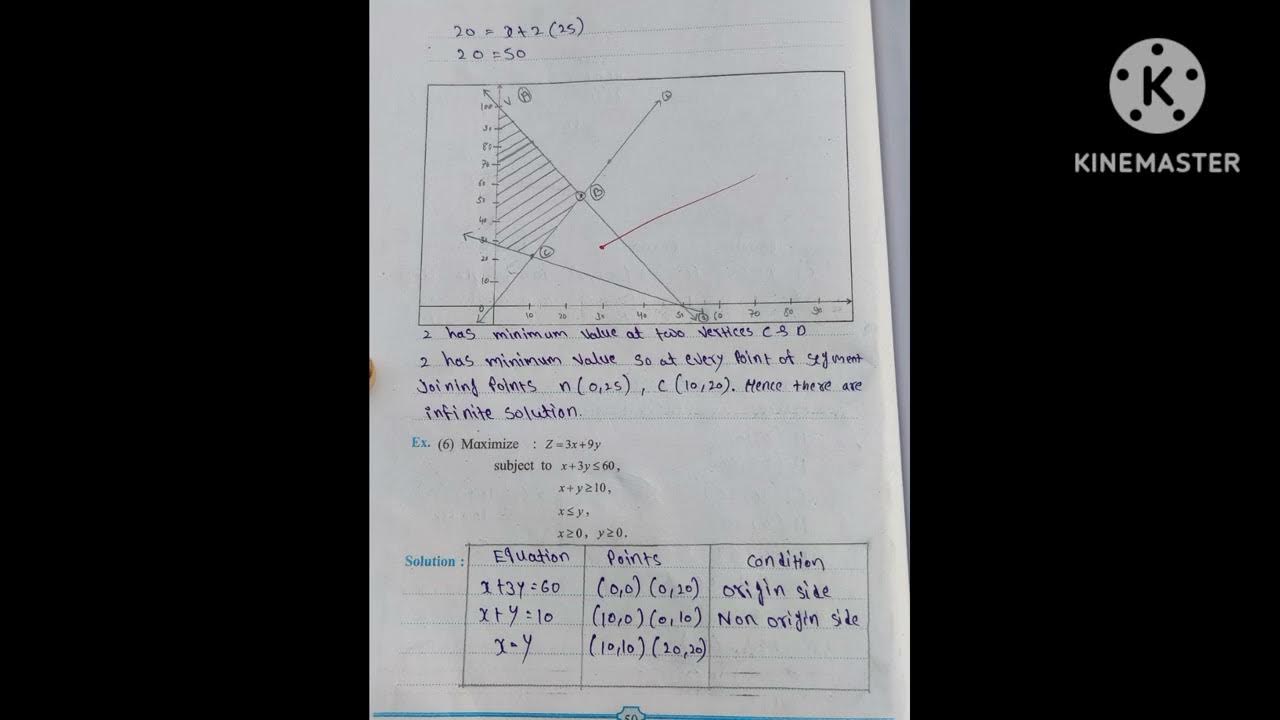 20 = x+2(25)
20 = 50
A
D
100
90
80
70
60
B
50
40
30
C
20
10
0
10 20 30 40 50 60 70 80 90
2 has minimum value at two vertices C & D
2 has minimum value so at every point of segment
Joining points n(0,25), C(10,20). Hence there are
infinite solution.
Ex. (6) Maximize : Z=3x+9y
subject to x+3y≤60,
x+y≥10,
x≤y,
x≥0, y≥0.
Solution : Equation Points Condition
x+3y=60 (0,0) (0,20) origin side
x+y=10 (10,0) (0,10) Non origin side
x=y (10,10) (20,20)
50
K
KINEMASTER